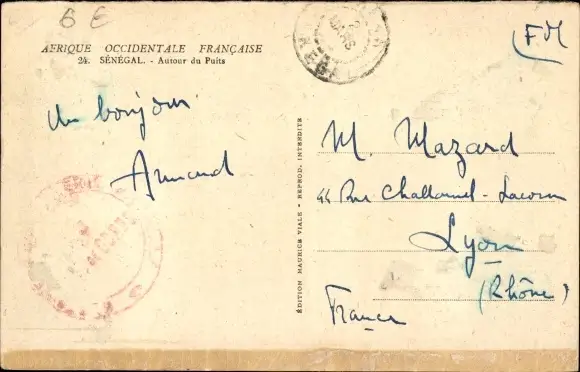 6 €
AFRIQUE OCCIDENTALE FRANÇAISE
24. SÉNÉGAL. - Autour du Puits
FM
Un bonjour
Armand
ÉDITION MAURICE VIALE - REPROD. INTERDITE
M. Mazard
44 Rue Challemel-Lacour
Lyon
(Rhône)
France